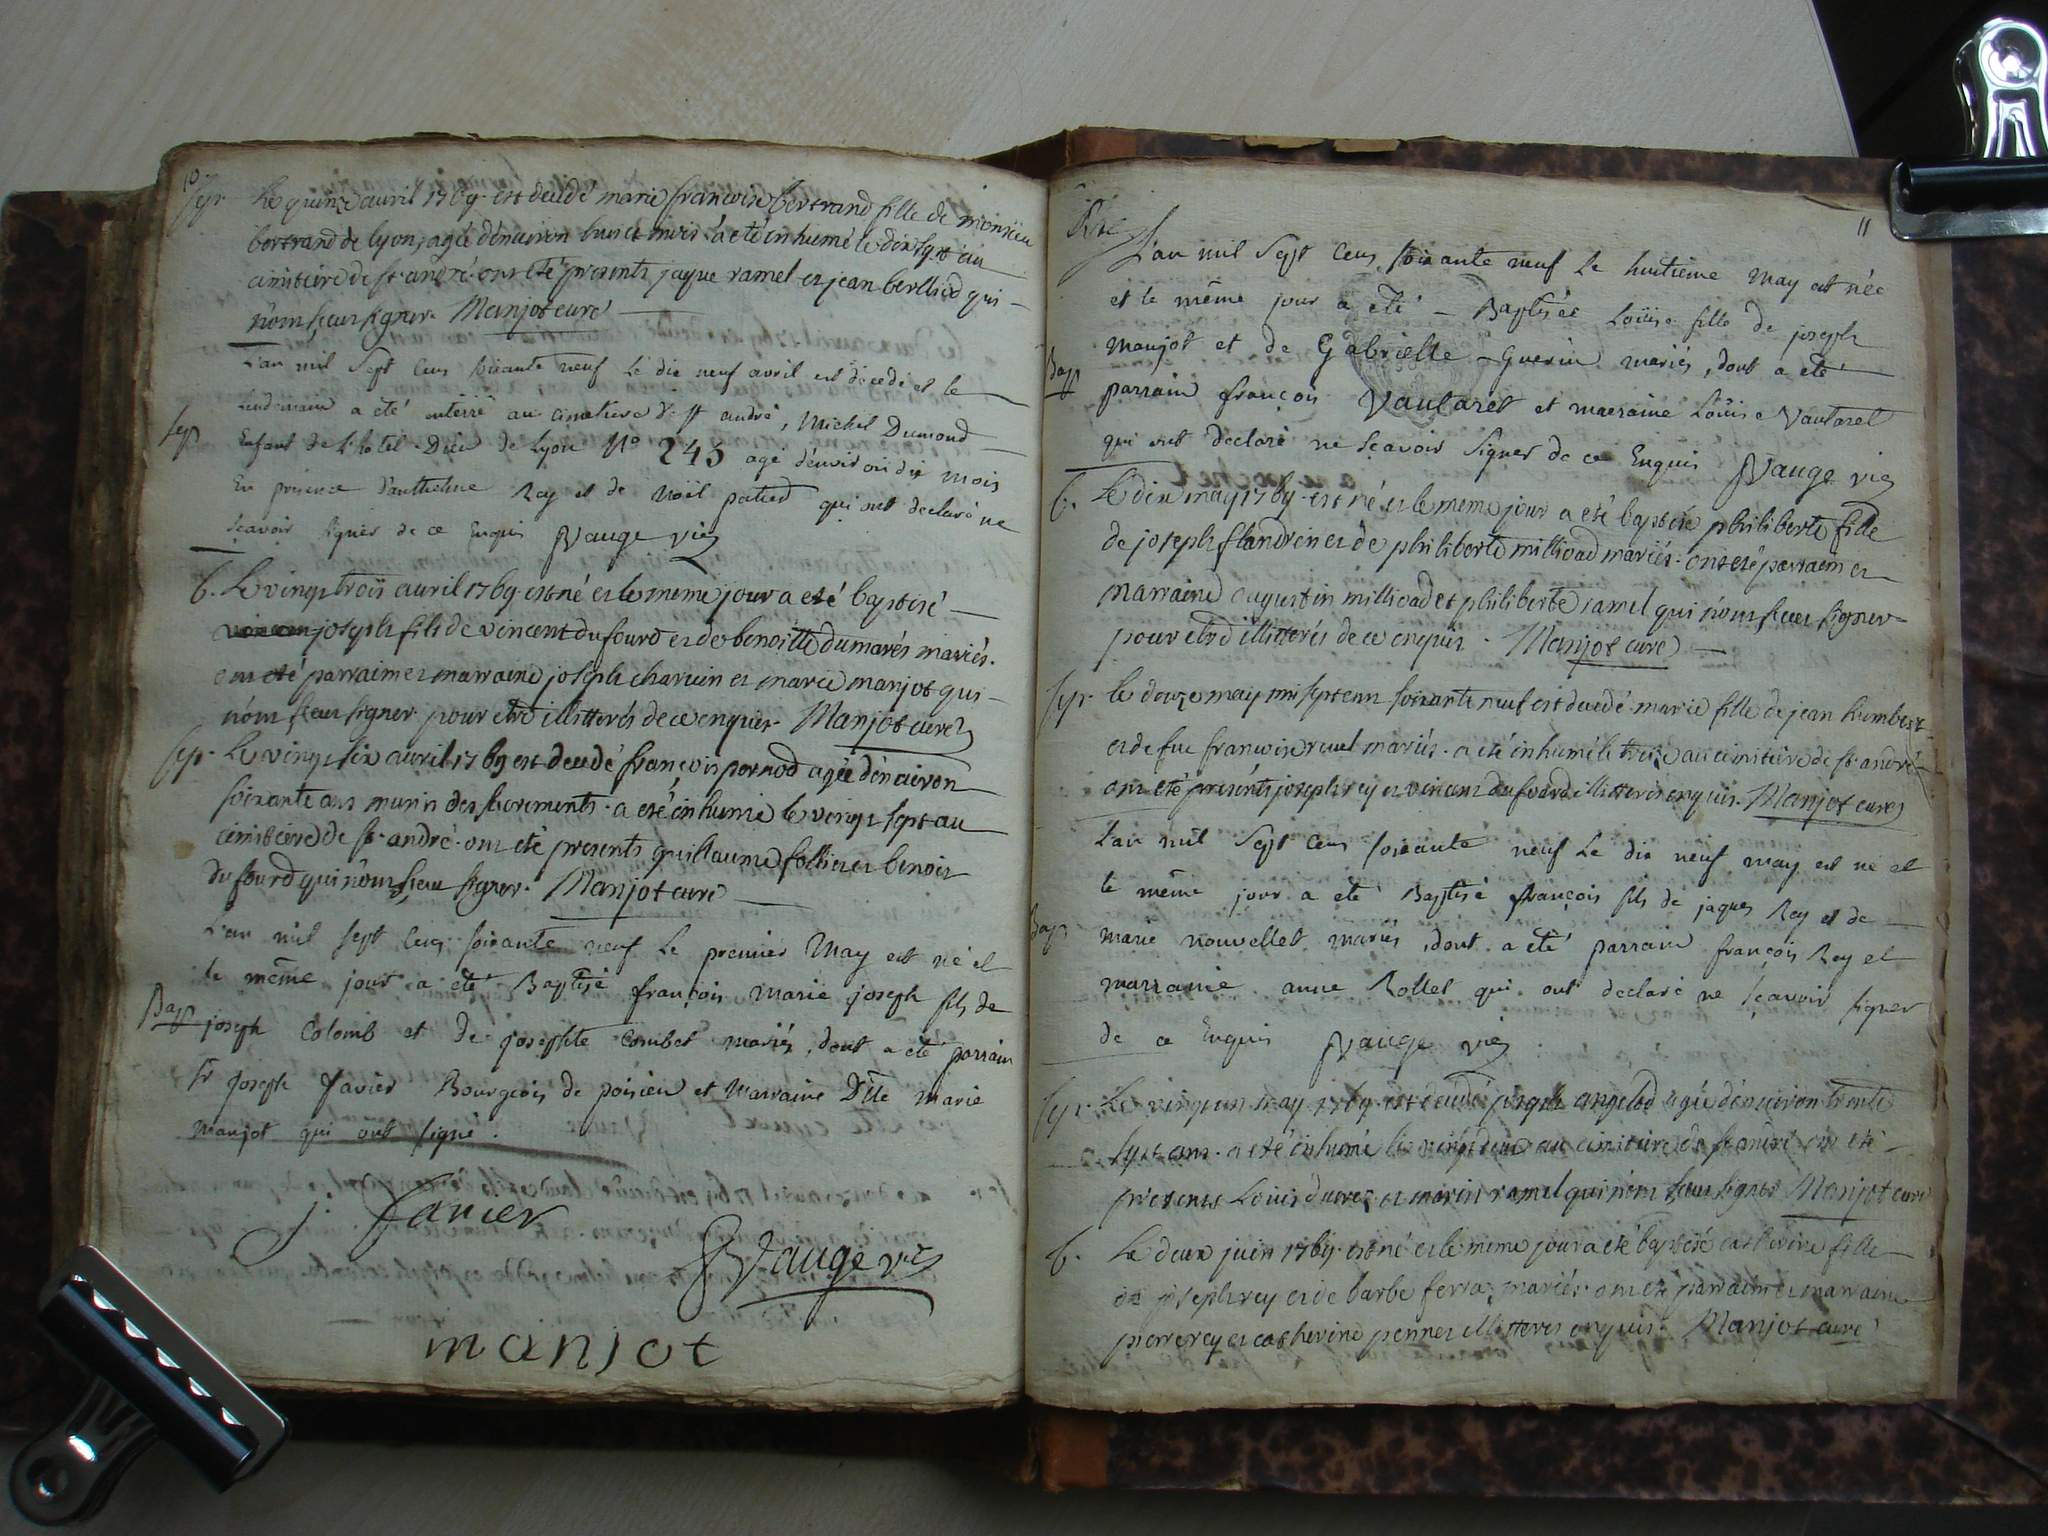 10
sep. Le quinze avril 1769 est decedé marie francoise bertrand fille de monsieu
bertrand de lyon, agée d'environ huict mois a eté inhumé le dix sept au
cimitiere de st. andré. ont eté presents jaque ramel et jean berlliod qui
n'ont sceu signer. Manjot curé
L'an mil Sept Cens soixante neuf Le dix neuf avril est décedé et le
lendemain a été enterré au cimetiere de st andré, Michel Dumond
sep Enfant de L'hotel-Dieu de Lyon N° 245 agé d'environ dix mois
En présence d'anthelme Rey et de Noël patied qui ont declaré ne
Sçavoir signer de ce Enquis JVauge vic
b. Le vingt trois avril 1769 est né et le meme jour a eté baptisé
joseph fils de vincent dufourd et de benoitte dumarés mariés.
ont eté parrain et marraine joseph charvin et marie manjot qui
n'ont sceu signer pour etre illitterés de ce enquis. Manjot curé
sep. Le vingt six avril 1769 est decedé francois pernod agée d'environ
soixante ans munis des sacrements. a eté inhumé le vingt sept au
cimitiere de st. andré. ont eté presents guillaume follier et benoit
dufourd qui n'ont sceu signer. Manjot curé
L'an mil sept Cens soixante neuf Le premier May est né et
le même jour a été Baptisé françois marie joseph fils de
Bap joseph Colomb et de josephte Combet mariés, dont a été parrain
Sr Joseph Janier Bourgeois de poisieu et Marraine Dlle marie
manjot qui ont signé.
j. Janier
JVauge vic
manjot
11
L'an mil Sept Cens soixante neuf Le huitieme may est née
et le même jour a été Baptisée Loüise fille de joseph
Bap manjot et de Gabrielle Guerin mariés, dont a été
parrain françois Vautaret et marraine Loüise Vautaret
qui ont declaré ne Sçavoir Signer de ce Enquis JVauge vic
b. Le dix may 1769 est né et le meme jour a eté baptisée philiberte fille
de joseph flandrin et de philiberte milliod mariés. ont eté parrain et
marraine augustin milliod et philiberte ramel qui n'ont sceu signer
pour etre illitterés de ce enquis. Manjot curé
sep. le douze may mil sept cent soixante neuf est decedé marie fille de jean humbert
et de fue francoise ruel mariés. a eté inhumé le treize au cimitiere de st. andré
ont eté présents joseph rey et vincent dufourd illitterés enquis. Manjot curé
L'an mil Sept Cens soixante neuf Le dix neuf may est né et
le même jour a été Baptisé françois fils de jaques Rey et de
Bap marie nouvellet mariés, dont a été parrain françois Rey et
marraine anne Rollet qui ont declaré ne sçavoir signer
de ce Enquis JVauge vic
sep. Le vingt un may 1769 est decedé joseph angelod agée d'environ trente
sept ans. a eté inhumé le vingt deux au cimitiere de st andré ont eté
presents Louis ducrez et marin ramel qui n'ont sceu signer Manjot curé
b. Le deux juin 1769 est né et le meme jour a eté baptisé catherine fille
de joseph rey et de barbe ferraz mariés. ont eté parrain et marraine
pierre rey et catherine pennet illitterés enquis. Manjot curé